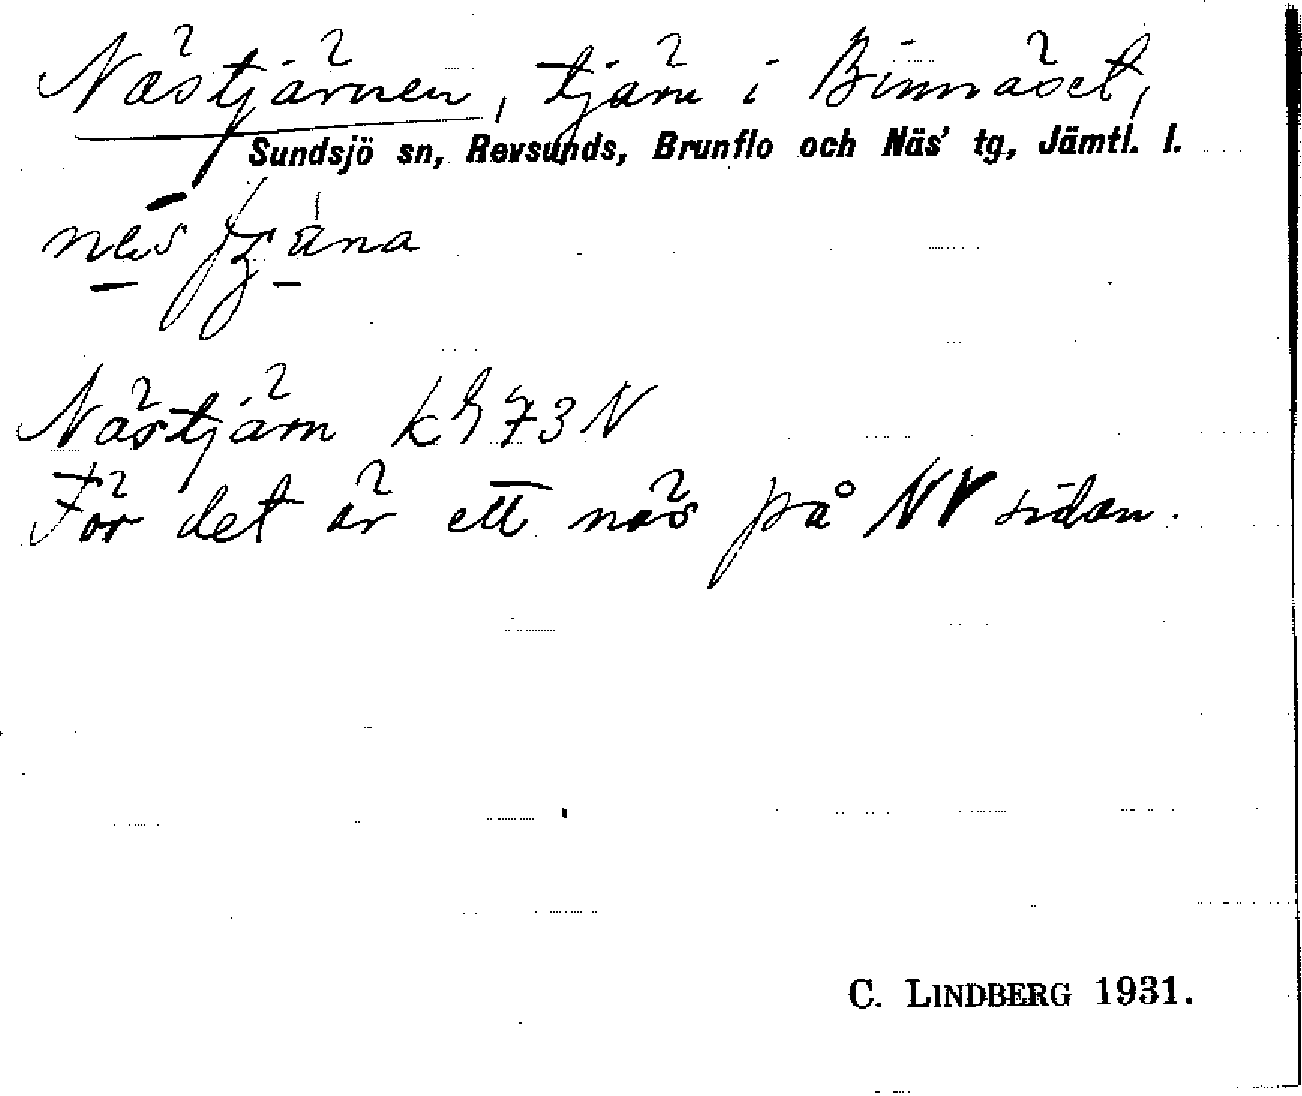 Nästjärnen, tjärn i Binnäset,
Sundsjö sn, Revsunds, Brunflo och Näs' tg, Jämtl. l.
Nästjärn 73 N
För det är ett näs på NV sidan.
C. LINDBERG 1931.